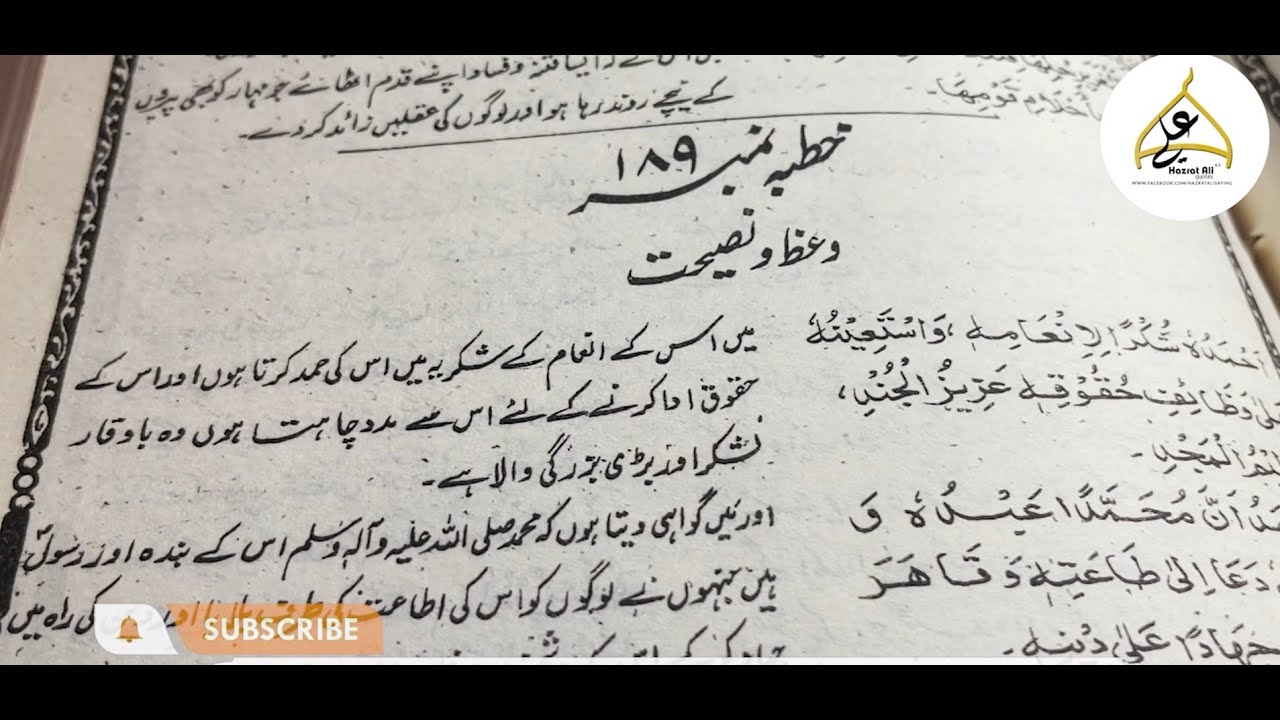 کے نیچے روند رہا ہو اور لوگوں کی عقلیں زائد کر دے۔
خطبہ نمبر ۱۸۹
وعظ و نصیحت
اَحْمَدُهٗ شُكْرًا لِاِنْعَامِهٖ، وَاَسْتَعِيْنُهٗ
وَظَائِفِ حُقُوْقِهٖ عَزِيْزُ الْجُنْدِ،
الْمَجْدِ۔
اَنَّ مُحَمَّدًا عَبْدُهٗ وَ
دَعَا اِلٰى طَاعَتِهٖ وَ قَاهَرَ
جِهَادًا عَلٰى دِيْنِهٖ۔
میں اس کے انعام کے شکریہ میں اس کی حمد کرتا ہوں اور اس کے
حقوق ادا کرنے کے لئے اس سے مدد چاہتا ہوں وہ باوقار
لشکر اور بڑی بزرگی والا ہے۔
اور میں گواہی دیتا ہوں کہ محمد صلی اللہ علیہ وآلہٖ وسلم اس کے بندہ اور رسول
ہیں جنہوں نے لوگوں کو اس کی اطاعت کی طرف کی راہ میں
علی
Hazrat Ali A.S
quotes
WWW.FACEBOOK.COM/HAZRATALISAYING
SUBSCRIBE